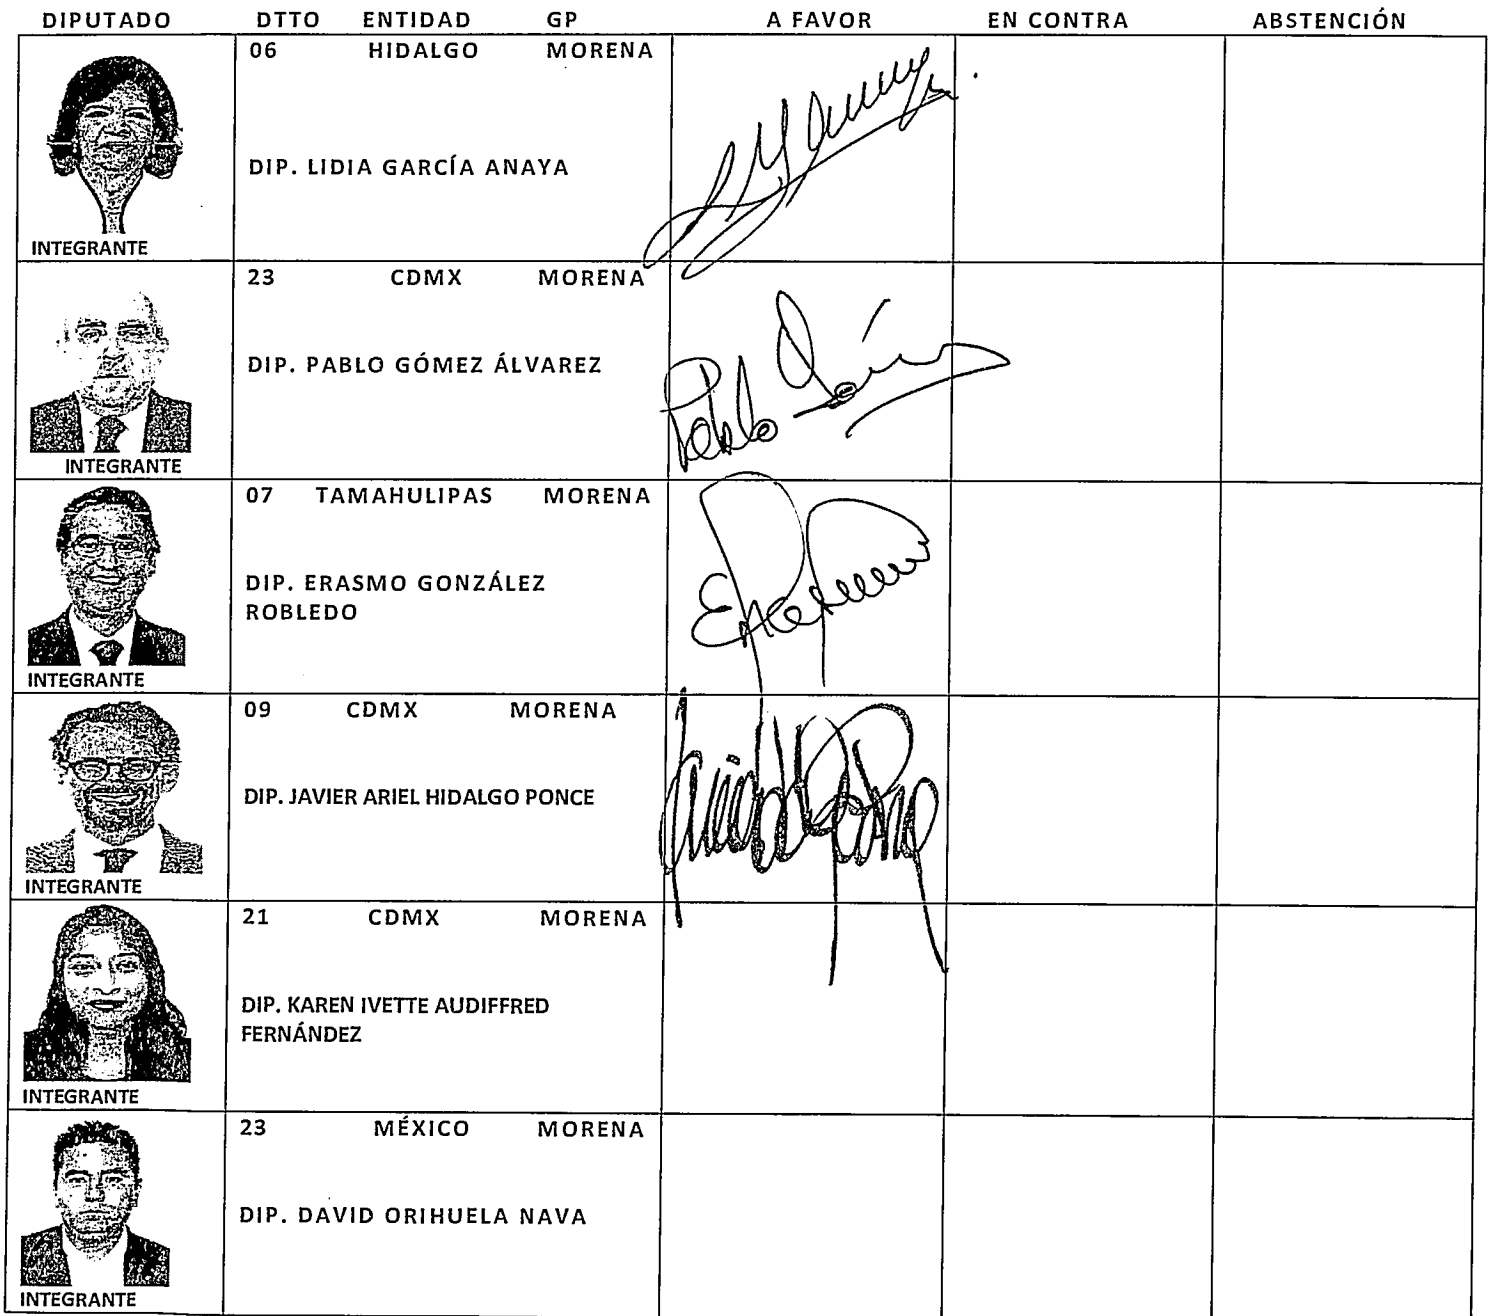 DIPUTADO DTTO ENTIDAD GP A FAVOR EN CONTRA ABSTENCIÓN
06 HIDALGO MORENA
DIP. LIDIA GARCÍA ANAYA
INTEGRANTE
23 CDMX MORENA
DIP. PABLO GÓMEZ ÁLVAREZ
Pablo
INTEGRANTE
07 TAMAHULIPAS MORENA
DIP. ERASMO GONZÁLEZ
ROBLEDO
INTEGRANTE
09 CDMX MORENA
DIP. JAVIER ARIEL HIDALGO PONCE
INTEGRANTE
21 CDMX MORENA
DIP. KAREN IVETTE AUDIFFRED
FERNÁNDEZ
INTEGRANTE
23 MÉXICO MORENA
DIP. DAVID ORIHUELA NAVA
INTEGRANTE